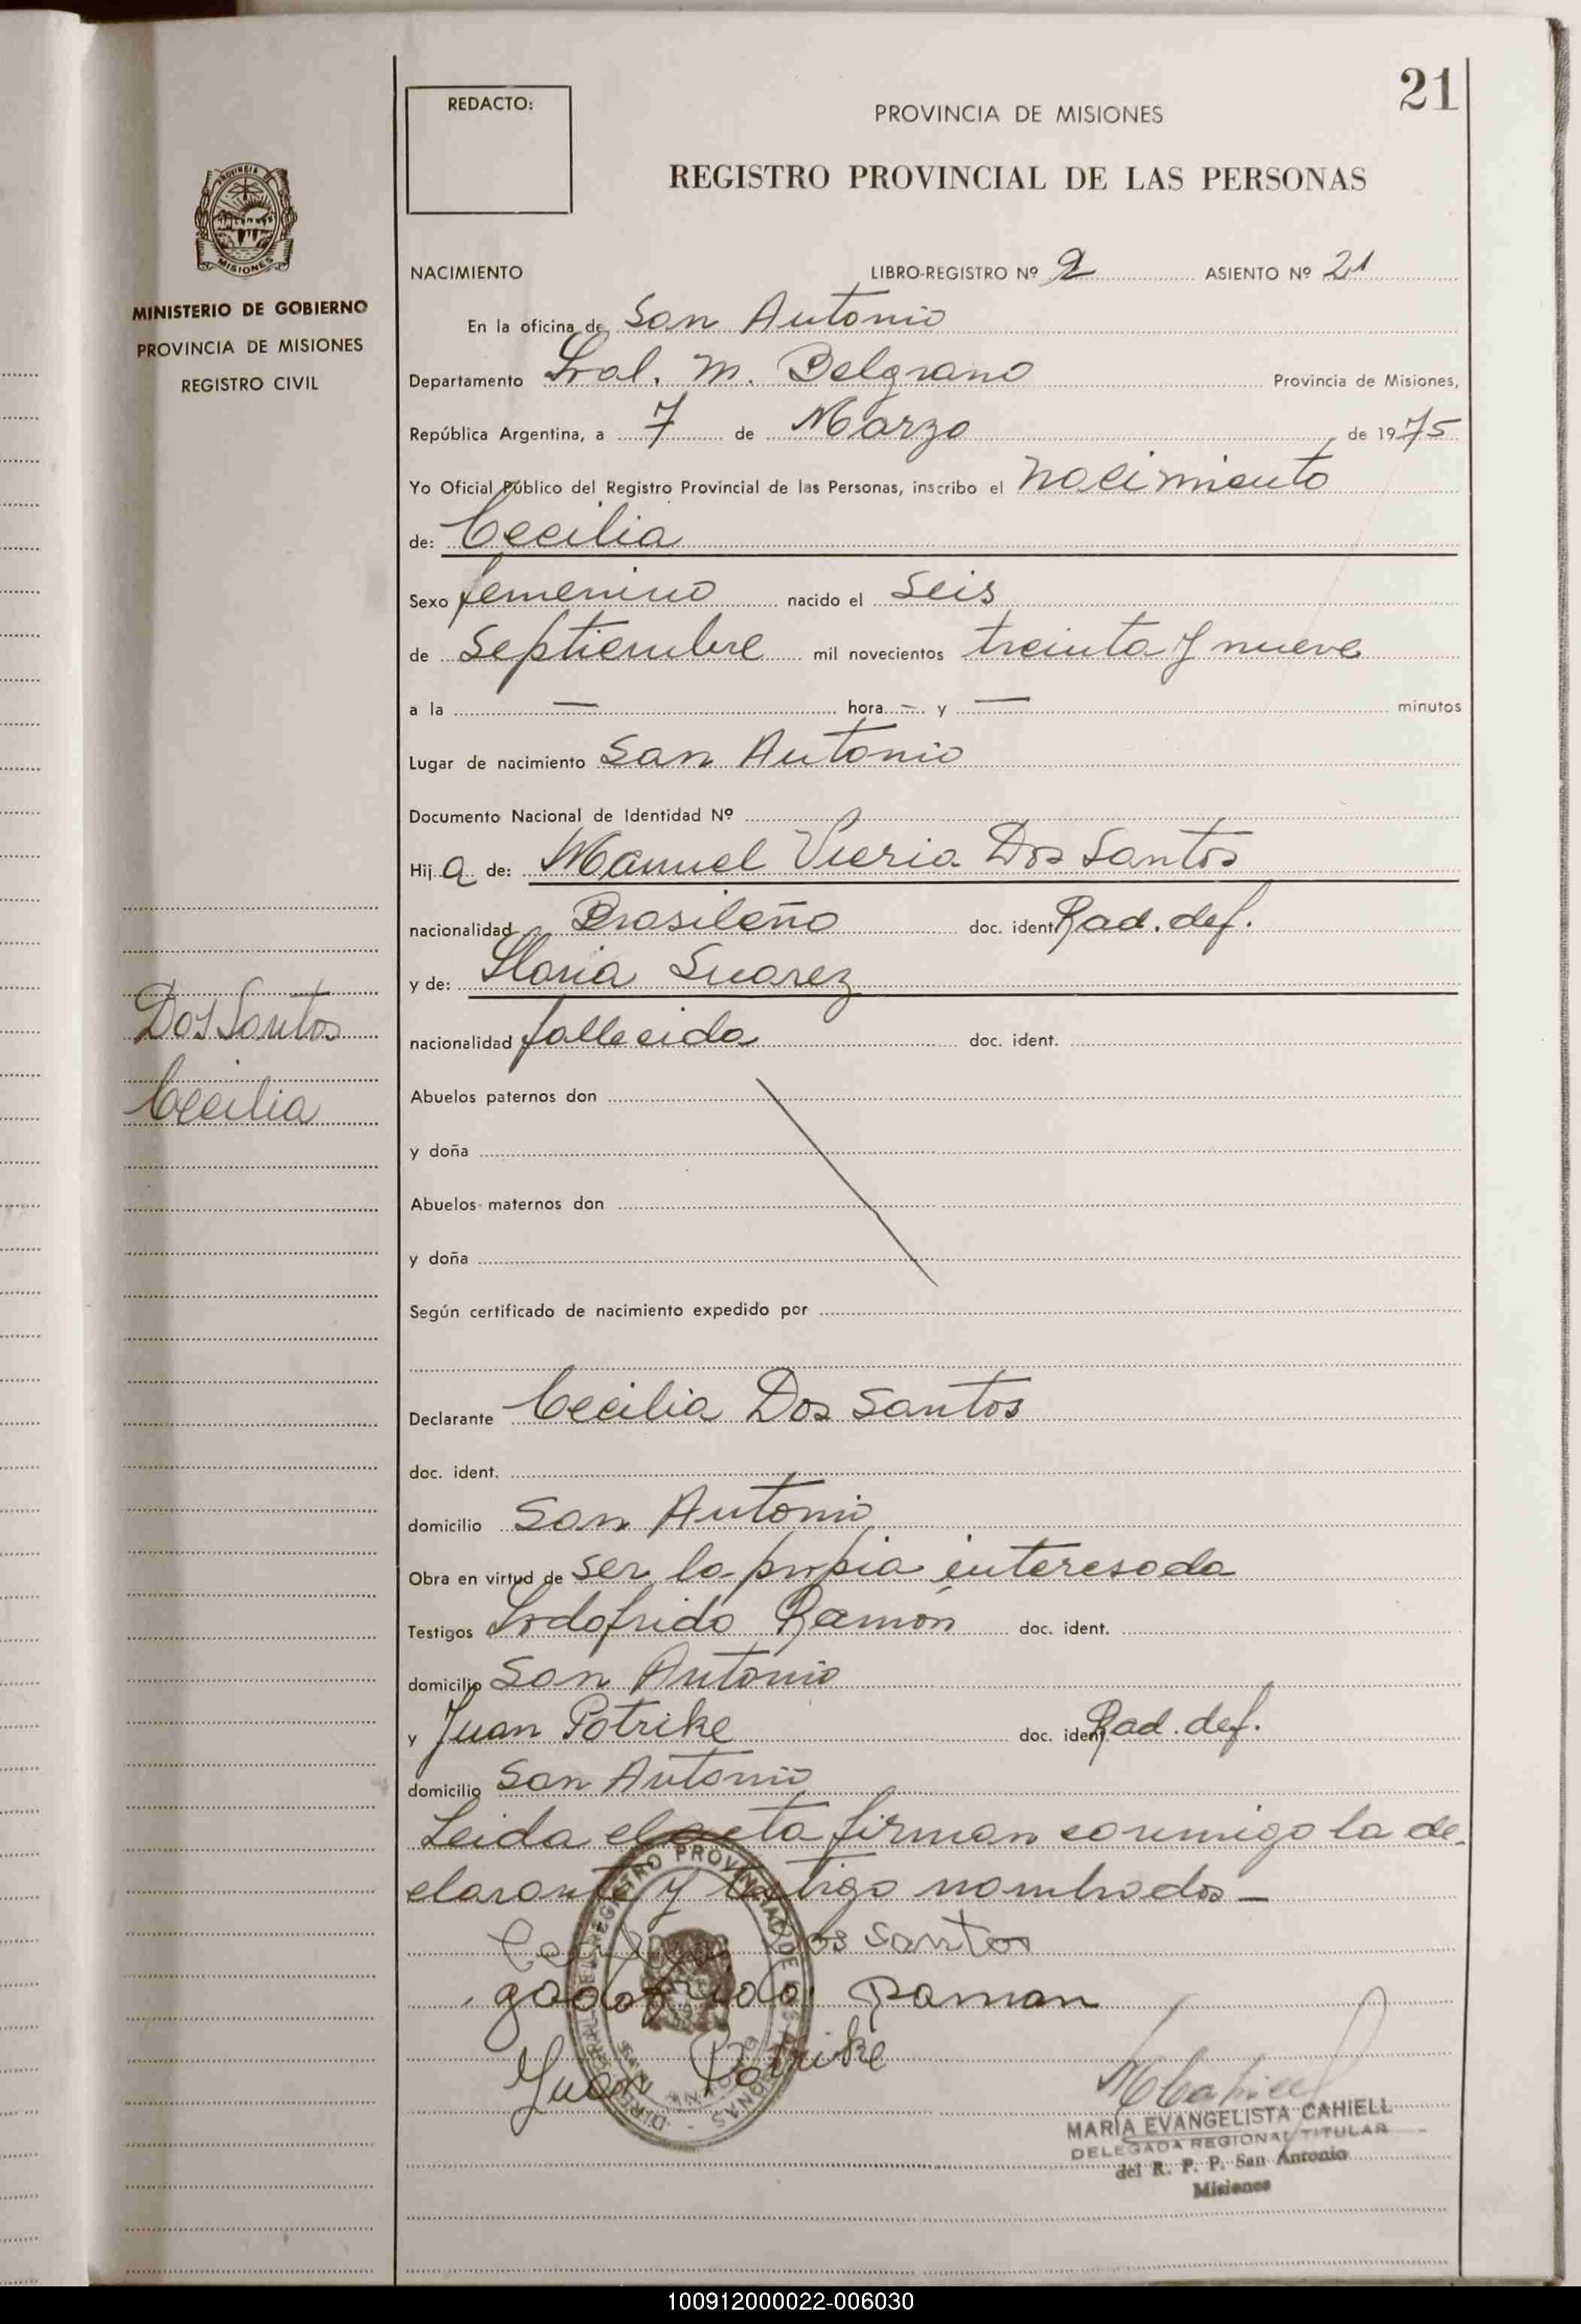 21
REDACTO:
PROVINCIA DE MISIONES
REGISTRO PROVINCIAL DE LAS PERSONAS
PROVINCIA DE
MISIONES
MINISTERIO DE GOBIERNO
PROVINCIA DE MISIONES
REGISTRO CIVIL
Dos Santos
Cecilia
NACIMIENTO LIBRO-REGISTRO Nº 2 ASIENTO Nº 21
En la oficina de San Antonio
Departamento Gral. M. Belgrano Provincia de Misiones,
República Argentina, a 7 de Marzo de 1975
Yo Oficial Público del Registro Provincial de las Personas, inscribo el nacimiento
de: Cecilia
Sexo femenino nacido el seis
de septiembre mil novecientos treinta y nueve
a la — hora — y — minutos
Lugar de nacimiento San Antonio
Documento Nacional de Identidad Nº
Hija de: Manuel Vieria Dos Santos
nacionalidad Brasileño doc. ident. Rad. def.
y de: Suarez
nacionalidad fallecida doc. ident.
Abuelos paternos don
y doña
Abuelos maternos don
y doña
Según certificado de nacimiento expedido por
Declarante Cecilia Dos Santos
doc. ident.
domicilio San Antonio
Obra en virtud de ser la propia interesada
Testigos Godofrido Ramón doc. ident.
domicilio San Antonio
y Juan Potrike doc. ident. Rad. def.
domicilio San Antonio
Leida el acta firman conmigo la de-
clarante y testigo nombrados —
dos Santos
godofrido Raman
Juan Potrike
MARIA EVANGELISTA CAHIELL
DELEGADA REGIONAL TITULAR
del R. P. P. San Antonio
Misiones
100912000022-006030